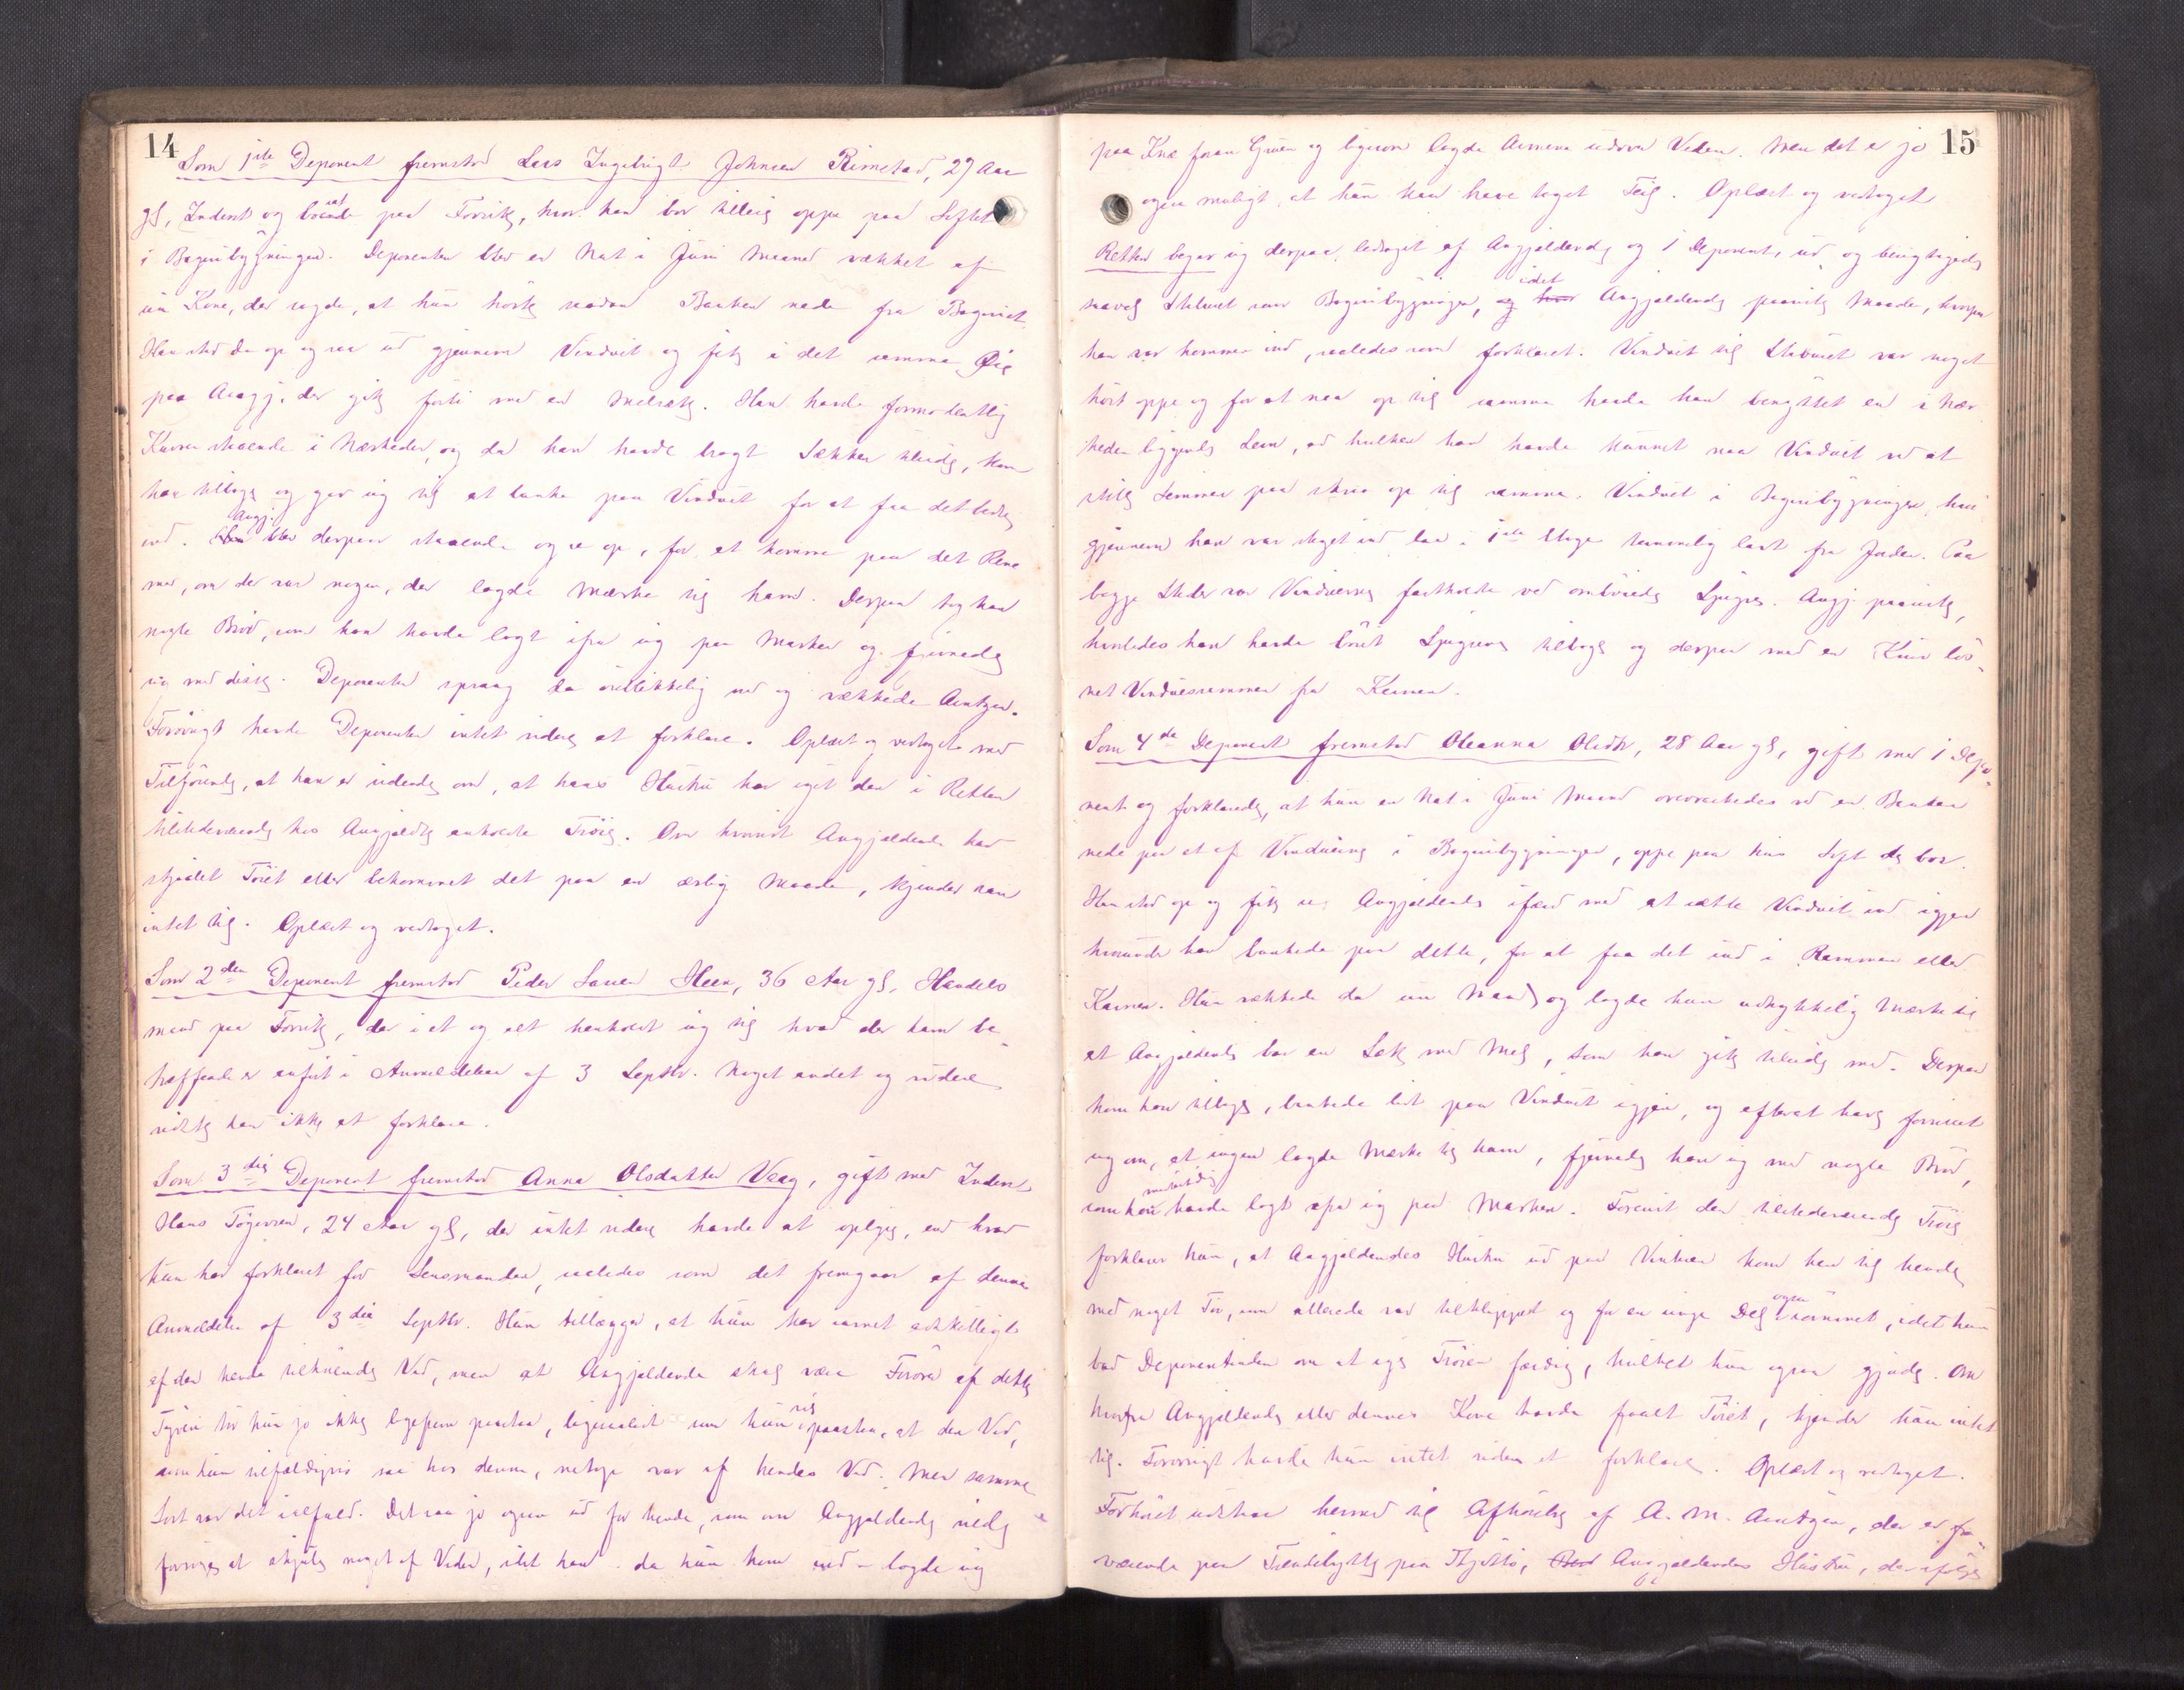 14
Som 1ste Deponent fremstod Lars Ingebrigt Johnsen Rimstad, 27 Aar
gl, Inderst og boende paa Forvik, hvor han bor tilleie oppe paa Loftet
i Bageribygningen. Deponenten blev en Nat i Juni Maaned vækket af
sin Kone, der sagde, at hun hørte saadan Banken nede fra Bageriet.
Han stod da op og saa ud gjennem Vinduet og fik i det samme Øie
paa Angj. der gik forbi med en Melsæk. Han havde formodentlig
Kurven staaende i Nærheden, og da han havde bragt Sækken tilside, kom
han tilbage og gav sig til at banke paa Vinduet for at faa det bedre
ind. Angj. blev derpaa staaende og se op, for at komme paa det Rene
med, om der var nogen, der lagde Mærke til ham. Derpaa tog han
nogle Brød, som han havde lagt ifra sig paa Marken og fjernede
sig med disse. Deponenten sprang da øieblikkelig ned og vækkede Arntzen.
Forøvrigt havde Deponenten intet videre at forklare. Oplæst og vedtaget med
Tilføiende, at han er uvidende om, at hans Hustru har eiet den i Retten
tilstedeværende hos Angjældte anholdte Trøie. Om hvorvidt Angjældende har
stjaalet Tøiet eller bekommet det paa en ærlig Maade, kjender han
intet til. Oplæst og vedtaget.
Som 2den Deponent fremstod Peder Larsen Steen, 36 Aar gl, Handels
mand paa Forvik, der i et og alt henholdt sig til hvad der ham be-
træffende er anført i Anmeldelsen af 3 Septbr. Noget andet og videre
vidste han ikke at forklare.
Som 3die Deponent fremstod Anna Olsdatter Vaag, gift med Inderst
Hans Tøgersen, 24 Aar gl, der intet videre havde at oplyse, end hvad
hun har forklaret for Lensmanden, saaledes som det fremgaar af denne
Anmeldelse af 3die Septbr. Hun tillægger, at hun har savnet adskilligt
af den hende tilhørende Ved, men at Angjældende skal være Forøver af dette
Tyveri tør hun jo ikke ligefrem paastaa, ligesaalidt som hun vil paastaa, at den Ved,
som hun tilfældigvis saa hos denne, netop var af hendes Ved. Men samme
Sort var det ialfald. Det saa jo ogsaa ud for hende, som om Angjældende vilde
forsøge at skjule noget af Veden, idet han - da hun kom ind - lagde sig
15
paa Knæ foran Gruen og ligesom lagde Armene udover Veden. Men det er jo
ogsaa muligt, at hun kan have taget Feil. Oplæst og vedtaget
Retten begav sig derpaa ledsaget af Angjældende og 1 Deponent, ud og besigtigede
saavel Staburet som Bagerbygningen, idet Angjældende paaviste Maaden, hvorpaa
han var kommen ind, saaledes som forklaret. Vinduet til Staburet var noget
høit oppe og for at naa op til samme havde han benyttet en i Nær
heden liggende Lem, ad hvilken han havde kunnet naa Vinduet ved at
stille Lemmen paa skraa op til samme. Vinduet i Bagerbygningen, hvori
gjennem han var steget ind laa i 1ste Etage temmelig lavt fra Jorden. Paa
begge Steder var Vinduerne fastholdte ved ombøiede Spigre. Angj. paaviste,
hvorledes han havde bøiet Spigrene tilbage og derpaa med en Kniv løs-
net Vinduesrammen fra Karmen.
Som 4de Deponent fremstod Oleanna Olsdtr, 28 Aar gl, gift med 1 Depo-
nent og forklarede, at hun en Nat i Juni Maaned overraskedes ved en Banken
nede paa et af Vinduerne i Bagerbygningen, oppe paa hvis Loft de bor.
Hun stod op og fik se Angjældende ifærd med at sætte Vinduet ind igjen
hvorunder han bankede paa dette, for at faa det ind i Rammen eller
Karmen. Hun vækkede da sin Mand og lagde hun udtrykkelig Mærke til
at Angjældende bar en Sæk med Mel, som han gik tilside med. Derpaa
kom han tilbage, bankede lidt paa Vinduet igjen, og efterat have forvisset
sig om, at ingen lagde Mærke til ham, fjernede han sig med nogle Brød,
som han midlertidig havde lagt ifra sig paa Marken. Foreviist den tilstedeværende Trøie
forklarer hun, at Angjældendes Hustru ud paa Vinteren kom hen til hende
med noget Tøi, som allerede var tilklippet og for en ringe Del ogsaa sømmet, idet hun
bad Deponentinden om at sye Trøien færdig, hvilket hun ogsaa gjorde. Om
hvorfra Angjældende eller dennes Kone havde faaet Tøiet, kjender hun intet
til. Forøvrigt havde hun intet videre at forklare. Oplæst og vedtaget.
Forhøret udstaar herved til Afhørelse af A. M. Arntzen, der er fra-
værende paa Tiendebytte paa Tjøttø, Angjældendes Hustru, der ifølge